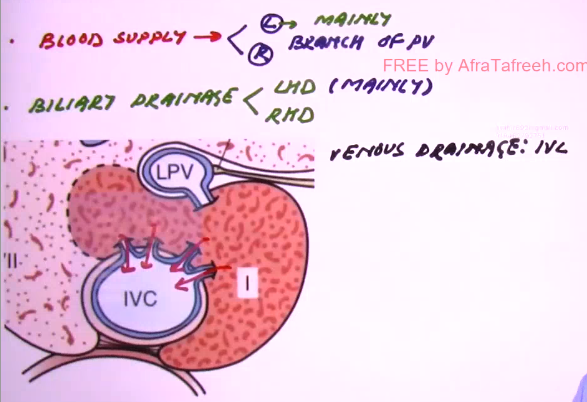 L → MAINLY
• BLOOD SUPPLY → < R BRANCH OF PV
FREE by AfraTafreeh.com
• BILIARY DRAINAGE < LHD (MAINLY)
RHD
VENOUS DRAINAGE: IVC
LPV
VII
IVC
I